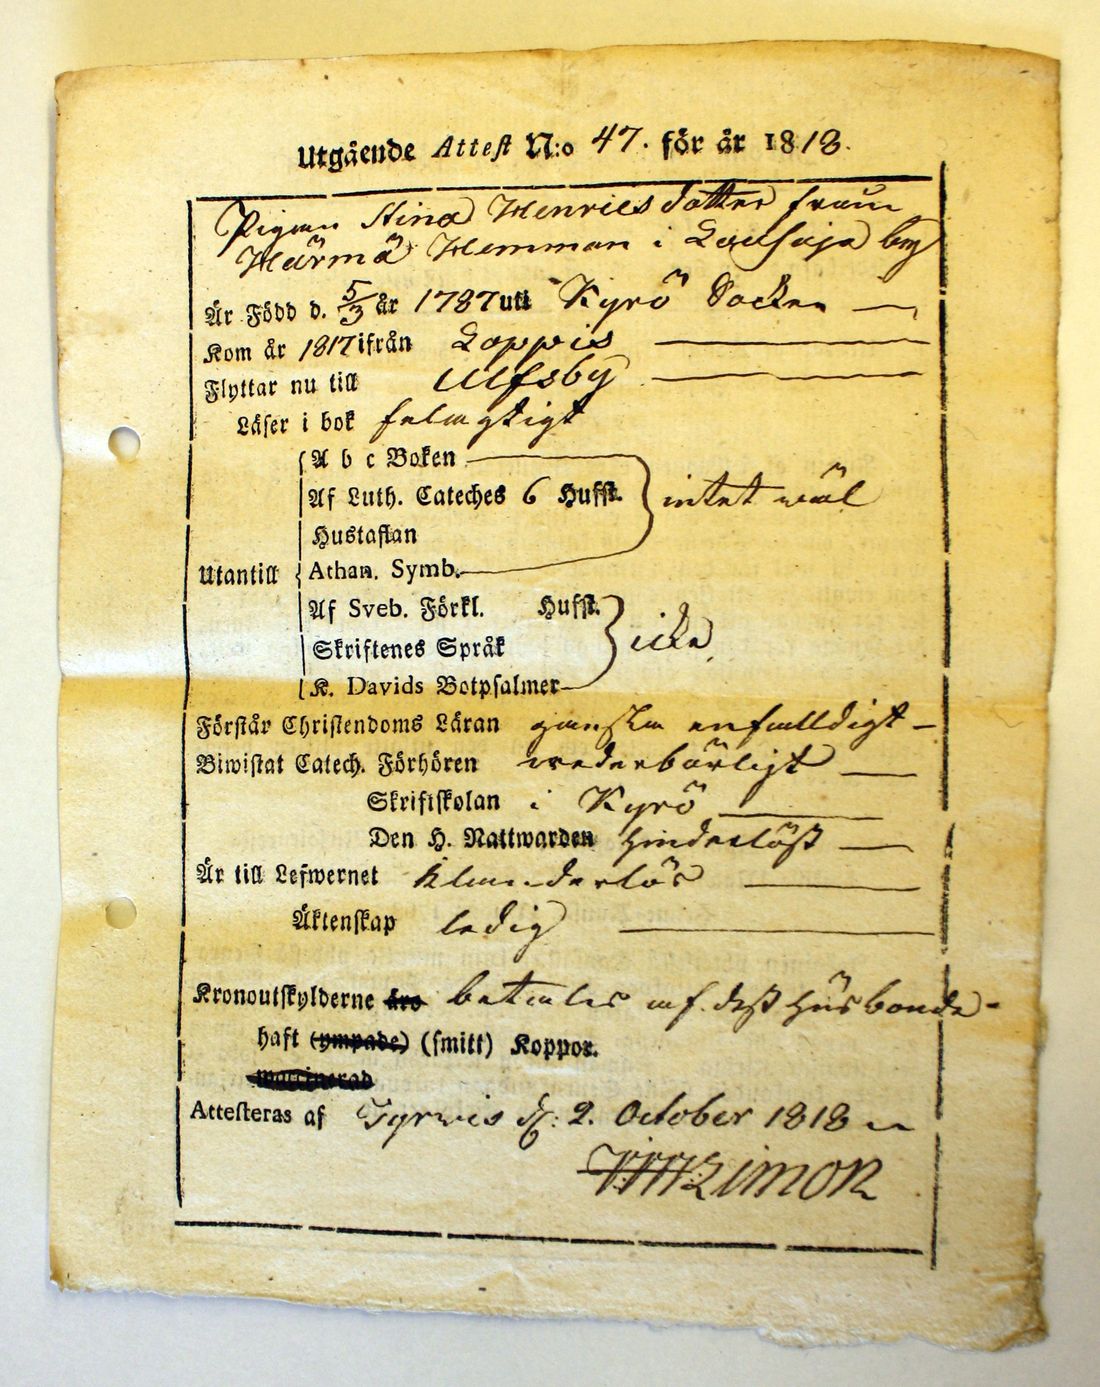 Utgående Attest N:o 47. för år 1818.
Pigan Stina Henricsdotter från
Härmä Hemman i by
Är Född d. 5/3 år 1787 uti Kyrö Socken
Kom år 1817 ifrån Loppis
Flyttar nu till Ulfsby
Läser i bok felagtigt
A b c Boken
Af Luth. Cateches 6 Hufst. intet wäl
Hustaflan
Utantill Athan. Symb.
Af Sveb. Förkl. Hufst.
Skriftenes Språk icke
K. Davids Botpsalmer
Förstår Christendoms Läran ganska enfalldigt
Biwistat Catech. Förhören wederbörligt
Skriftskolan i Kyrö
Den H. Nattwarden hinderlöst
Är till Lefwernet klanderlös
Äktenskap ledig
Kronoutskylderne äro betales af dess Husbonde
haft (ympade) (smitt) Koppor.
waccinerad
Attesteras af d. 2. October 1818